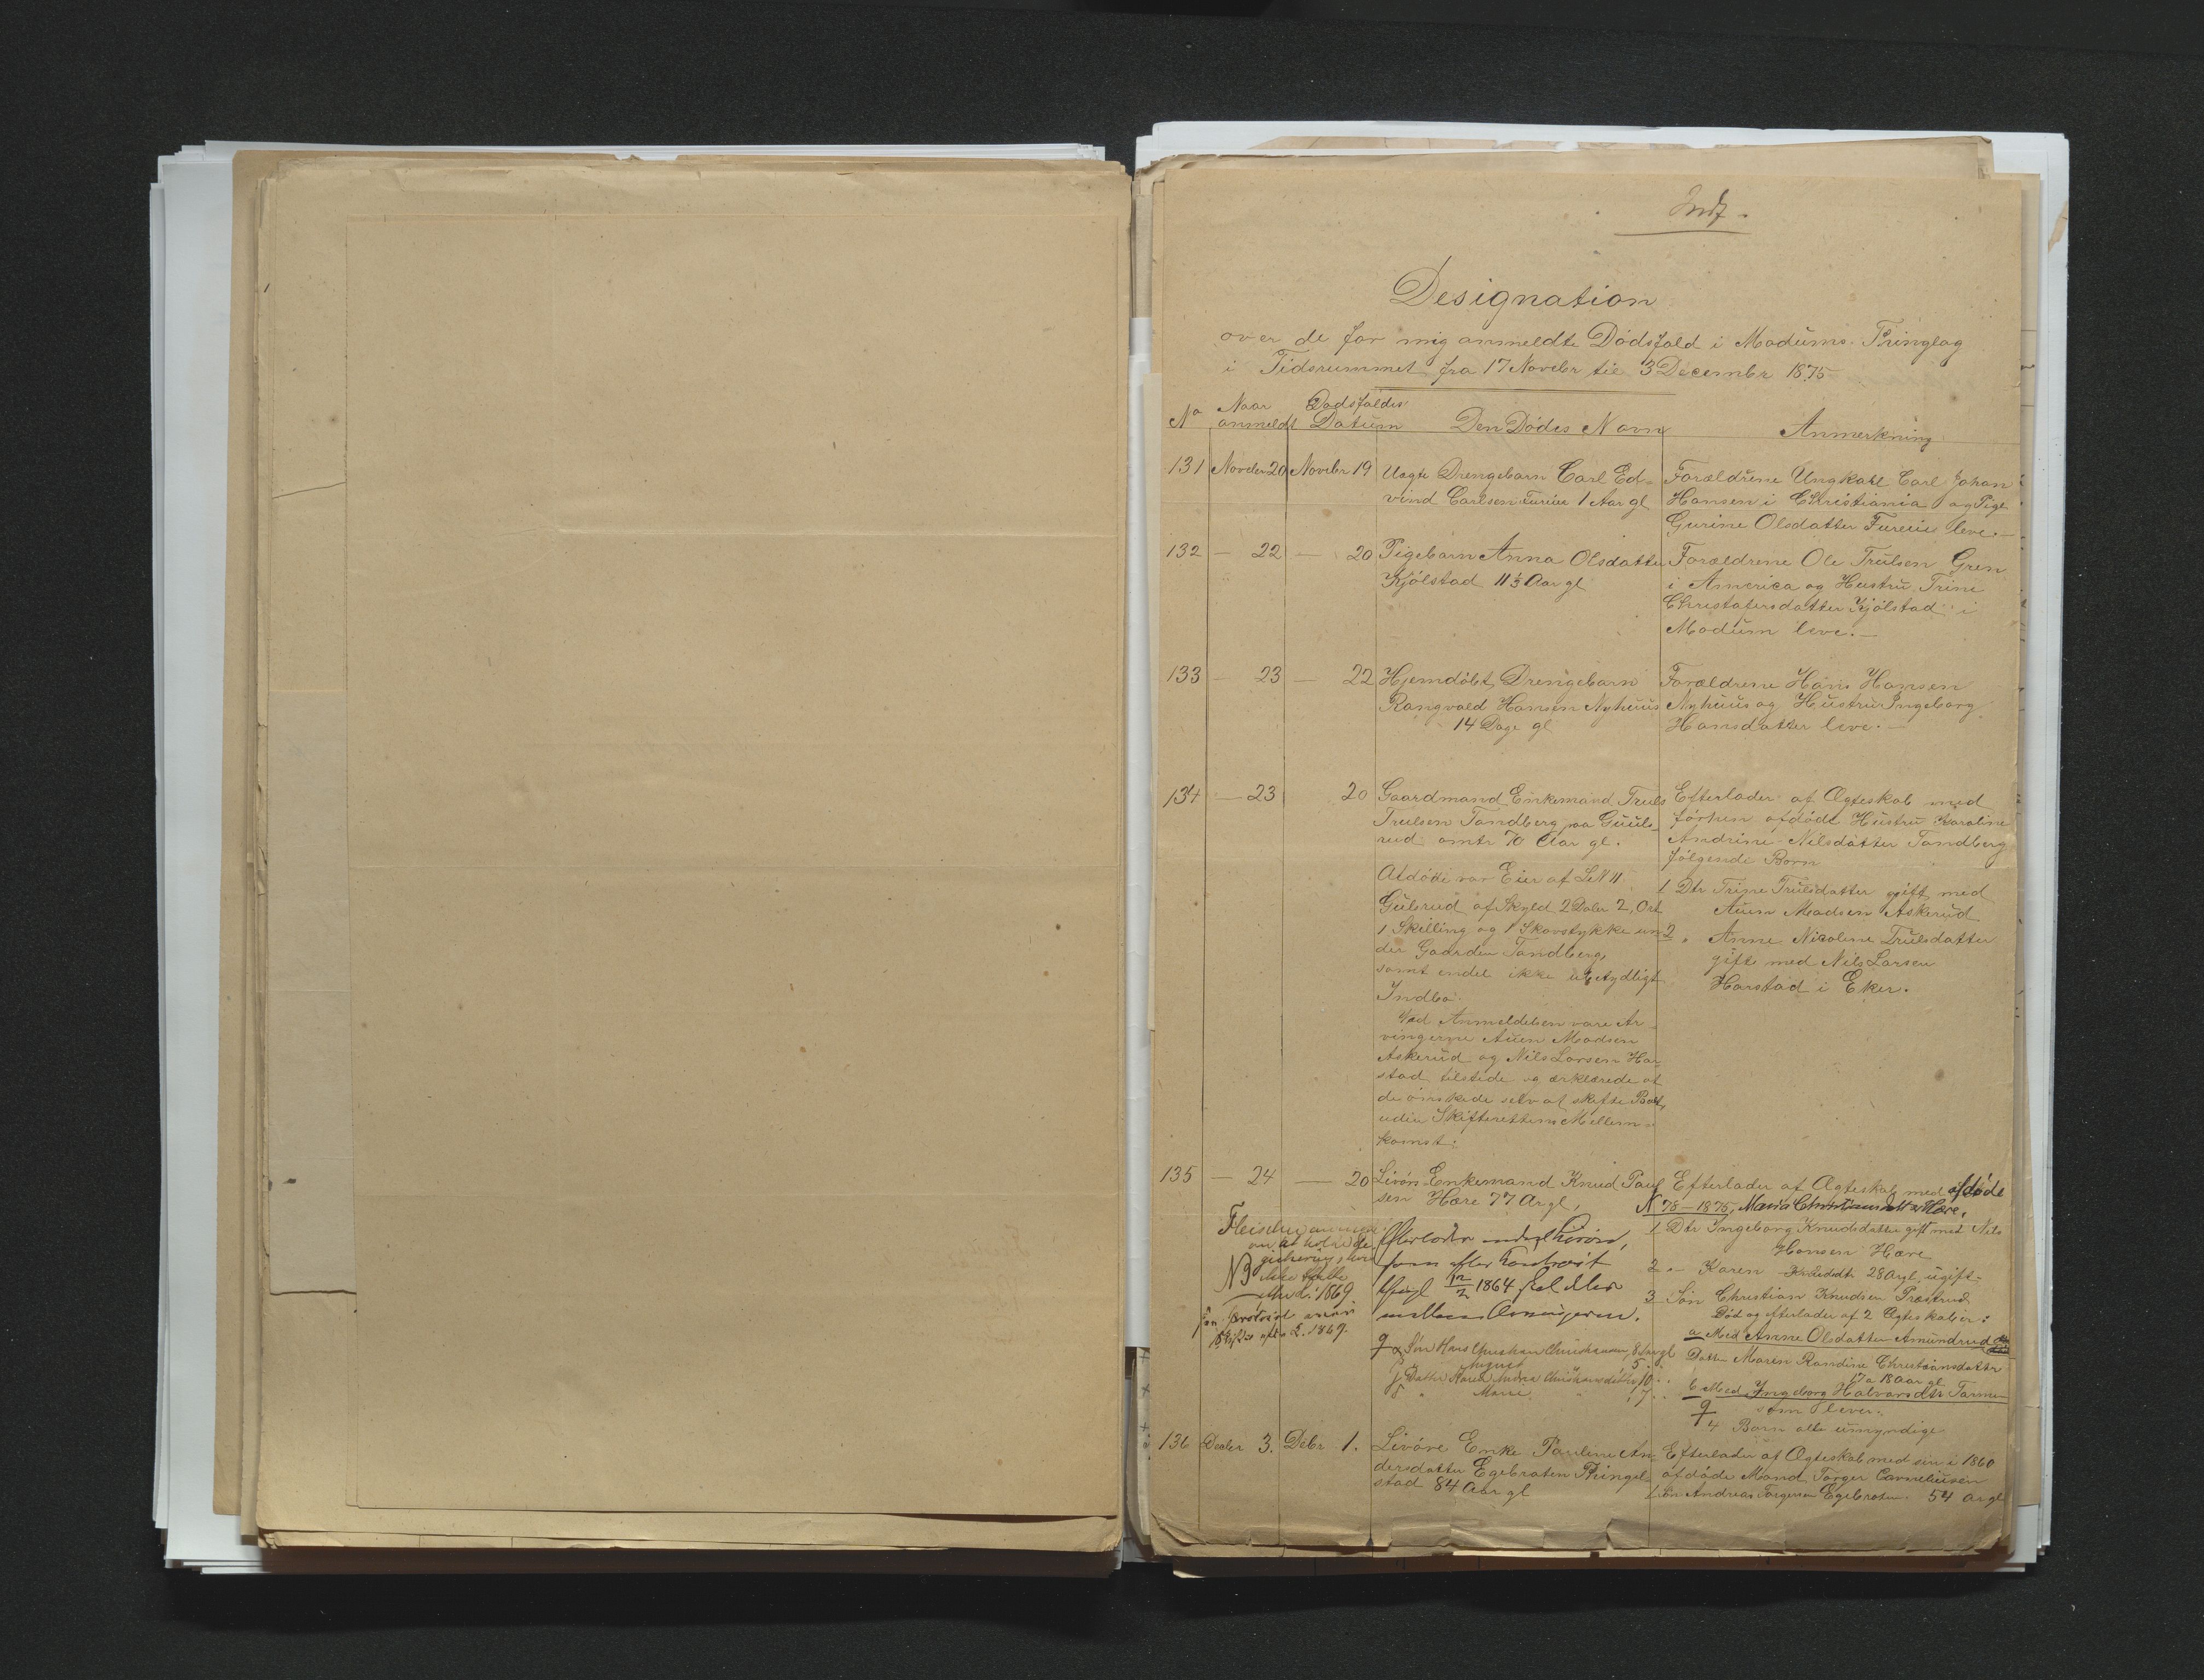 Indf.
Designation
over de for mig anmeldte Dødsfald i Modums Thinglag
i Tidsrummet fra 17 Novebr til 3 Decembr 1875
No Naar anmeldt Dødsfaldets Datum Den Dødes Navn Anmerkning
131 Novebr 20 Novebr 19 Uægte Drengebarn Carl Ed-
vind Carlsen Furuie 1 Aar gl
Forældrene Ungkarl Carl Johan
Hansen i Christiania og Pige
Gurine Olsdatter Furuie leve.—
132 — 22 — 20 Pigebarn Anna Olsdatter
Kjølstad 11 1/3 Aar gl
Forældrene Ole Trulsen Gren
i America og Hustru Trine
Christofersdatter Kjølstad i
Modum leve.—
133 — 23 — 22 Hjemdøbt Drengebarn
Rangvald Hansen Nyhuus
14 Dage gl
Forældrene Hans Hansen
Nyhuus og Hustru Ingeborg
Hansdatter leve.—
134 — 23 20 Gaardmand Enkemand Truls
Trulsen Tandberg paa Guuls-
rud omtr 70 Aar gl.
Afdøde var Eier af LN 11
Gulsrud af Skyld 2 Daler 2 Ort
1 Skilling og 1 Skovstykke un-
der Gaarden Tandberg,
samt endel ikke ubetydligt
Indbo.
Ved Anmeldelsen vare Ar-
vingerne Auen Madsen
Askerud og Nils Larsen Har-
stad tilstede og ærklærede at
de ønskede selv at skifte Boet,
uden Skifterettens Mellem-
komst.
Efterlader af Ægteskab med
førhen afdøde Hustru Karoline
Andrine Nilsdatter Tandberg
følgende Børn
1 Dtr Trine Trulsdatter gift med
Auen Madsen Askerud
2 " Anne Nicoline Trulsdatter
gift med Nils Larsen
Harstad i Eker.
135 — 24 — 20 Livørs Enkemand Knud Paul-
sen Hære 77 Ar gl,
Efterlader
som efter Kontrakt
thingl 12/2 1864 skal deles
mellem Arvingerne.
NB
1869
1869.
α Søn Hans Christian Christiansen, 8 Aar gl
August 5
γ Datter Karen Andrea Christiansdatter 10
δ " Marie " 7
Efterlader af Ægteskab med afdøde
N 78 – 1875, Maria Hære,
1 Dtr Ingeborg Knudsdatter gift med Nils
Hansen Hære
2 " Karen Knudsdtr 28 Ar gl, ugift
3 Søn Christian Knudsen Præstrud
Død og efterlader af 2 Ægteskaber:
a Med Anne Olsdatter Amundrud
Datter Maren Randine Christiansdattr
17 a 18 Aar gl
b Med Ingeborg Halvorsdtr
som lever.
4 Børn alle umyndige
136 Decbr 3. Debr 1. Livøre Enke Pauline An-
dersdatter Egebraten Thingel-
stad 84 Aar gl
Efterlader af Ægteskab med sin i 1860
afdøde Mand Torger Corneliusen
1 Søn Andreas Torgersen Egebraten 54 Ar gl